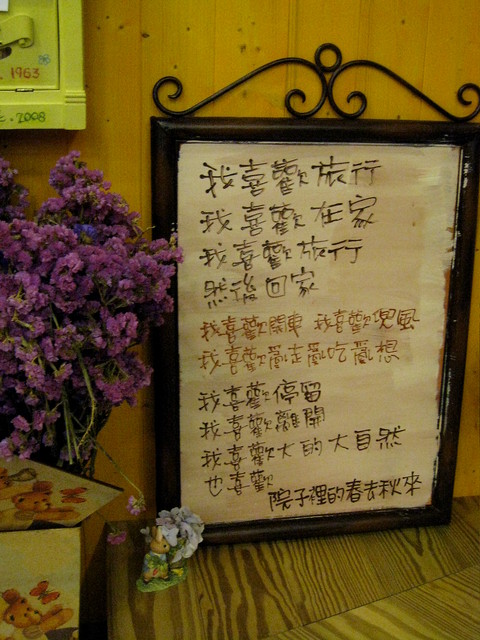 1963
.2008
我喜歡旅行
我喜歡在家
我喜歡旅行
然後回家
我喜歡關東 我喜歡兜風
我喜歡亂走亂吃亂想
我喜歡停留
我喜歡離開
我喜歡大的大自然
也喜歡
院子裡的春去秋來